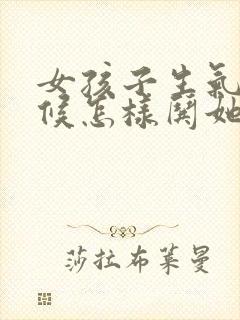 女孩子生氣
候怎樣闋她
莎拉布萊曼